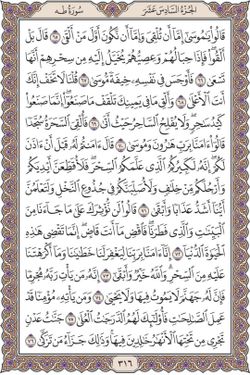 الجزء السادس عشر
سورة طه
قَالُوا يَٰمُوسَىٰٓ إِمَّآ أَن تُلْقِىَ وَإِمَّآ أَن نَّكُونَ أَوَّلَ مَنْ أَلْقَىٰ ٦٥ قَالَ بَلْ
أَلْقُوا فَإِذَا حِبَالُهُمْ وَعِصِيُّهُمْ يُخَيَّلُ إِلَيْهِ مِن سِحْرِهِمْ أَنَّهَا
تَسْعَىٰ ٦٦ فَأَوْجَسَ فِى نَفْسِهِۦ خِيفَةً مُّوسَىٰ ٦٧ قُلْنَا لَا تَخَفْ إِنَّكَ
أَنتَ ٱلْأَعْلَىٰ ٦٨ وَأَلْقِ مَا فِى يَمِينِكَ تَلْقَفْ مَا صَنَعُوٓا إِنَّمَا صَنَعُوا
كَيْدُ سَٰحِرٍ وَلَا يُفْلِحُ ٱلسَّاحِرُ حَيْثُ أَتَىٰ ٦٩ فَأُلْقِىَ ٱلسَّحَرَةُ سُجَّدًا
قَالُوٓا ءَامَنَّا بِرَبِّ هَٰرُونَ وَمُوسَىٰ ٧٠ قَالَ ءَامَنتُمْ لَهُۥ قَبْلَ أَنْ ءَاذَنَ
لَكُمْ إِنَّهُۥ لَكَبِيرُكُمُ ٱلَّذِى عَلَّمَكُمُ ٱلسِّحْرَ فَلَأُقَطِّعَنَّ أَيْدِيَكُمْ
وَأَرْجُلَكُم مِّنْ خِلَٰفٍ وَلَأُصَلِّبَنَّكُمْ فِى جُذُوعِ ٱلنَّخْلِ وَلَتَعْلَمُنَّ
أَيُّنَآ أَشَدُّ عَذَابًا وَأَبْقَىٰ ٧١ قَالُوا لَن نُّؤْثِرَكَ عَلَىٰ مَا جَآءَنَا مِنَ
ٱلْبَيِّنَٰتِ وَٱلَّذِى فَطَرَنَا فَٱقْضِ مَآ أَنتَ قَاضٍ إِنَّمَا تَقْضِى هَٰذِهِ
ٱلْحَيَوٰةَ ٱلدُّنْيَآ ٧٢ إِنَّآ ءَامَنَّا بِرَبِّنَا لِيَغْفِرَ لَنَا خَطَٰيَٰنَا وَمَآ أَكْرَهْتَنَا
عَلَيْهِ مِنَ ٱلسِّحْرِ وَٱللَّهُ خَيْرٌ وَأَبْقَىٰٓ ٧٣ إِنَّهُۥ مَن يَأْتِ رَبَّهُۥ مُجْرِمًا
فَإِنَّ لَهُۥ جَهَنَّمَ لَا يَمُوتُ فِيهَا وَلَا يَحْيَىٰ ٧٤ وَمَن يَأْتِهِۦ مُؤْمِنًا قَدْ
عَمِلَ ٱلصَّٰلِحَٰتِ فَأُولَٰٓئِكَ لَهُمُ ٱلدَّرَجَٰتُ ٱلْعُلَىٰ ٧٥ جَنَّٰتُ عَدْنٍ
تَجْرِى مِن تَحْتِهَا ٱلْأَنْهَٰرُ خَٰلِدِينَ فِيهَا وَذَٰلِكَ جَزَآءُ مَن تَزَكَّىٰ ٧٦
٣١٦